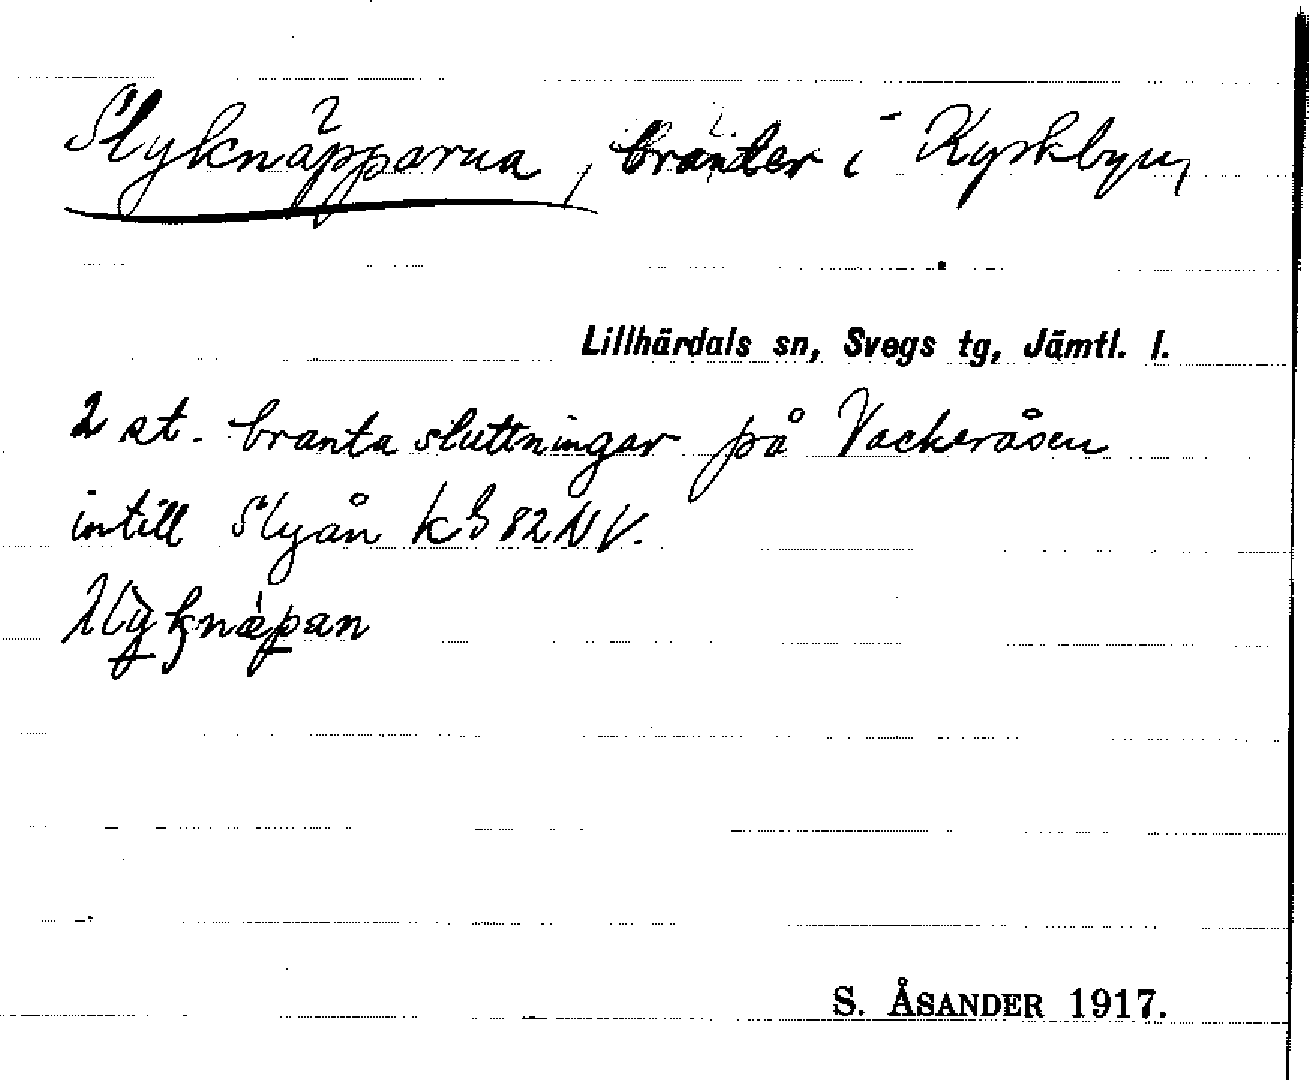 Slyknäpparna, branter i Kyrkbyn,
Lillhärdals sn, Svegs tg, Jämtl. l.
2 st. branta sluttningar på Vackeråsen
intill Slyån kb 82 NV.